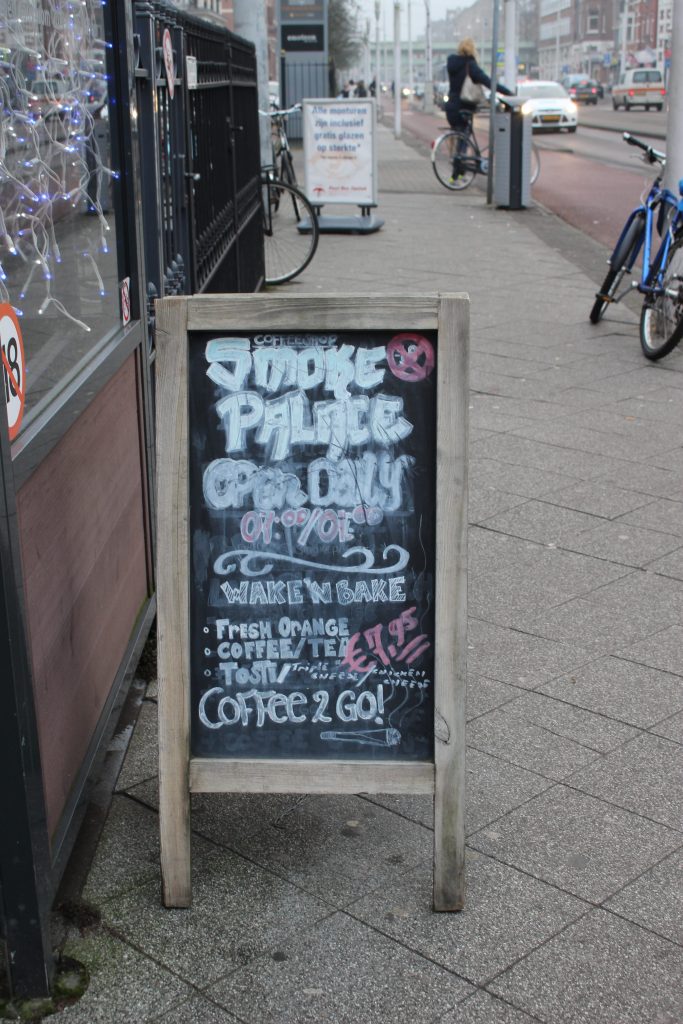 Alle monturen
zijn inclusief
gratis glazen
op sterkte*
18
COFFEESHOP
SMOKE
PALACE
OPEN DAILY
WAKE'N BAKE
FRESH ORANGE
COFFEE/TEA
€7.95
TOSTI/TRIPLE CHEESE/CHICKEN CHEESE
COFFEE 2 GO!